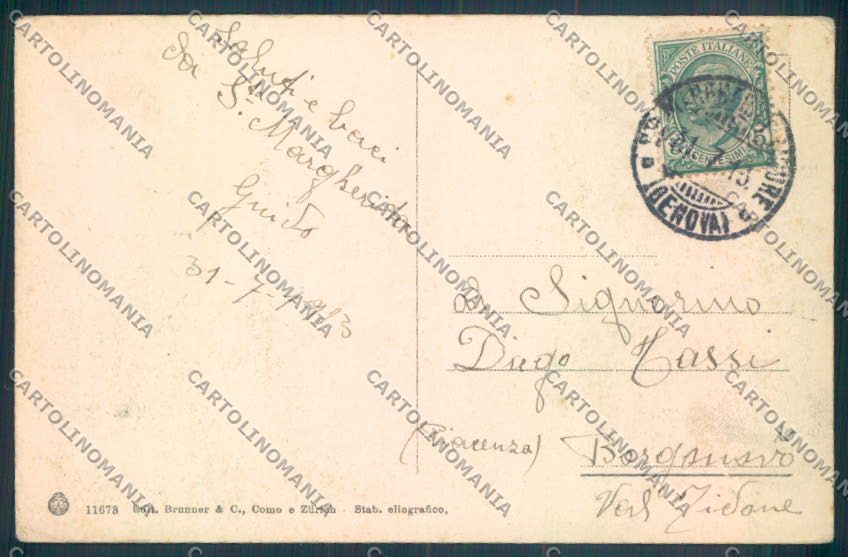 Saluti e baci
da S.ta Margherita
Guido
31-7-1913
POSTE ITALIANE
CENTESIMI
LIGURE
(GENOVA)
Signorino
Diego Tassi
(Piacenza) Borgonovo
Val Tidone
11673 Edit. Brunner & C., Como e Zürich - Stab. eliografico.
CARTOLINOMANIA